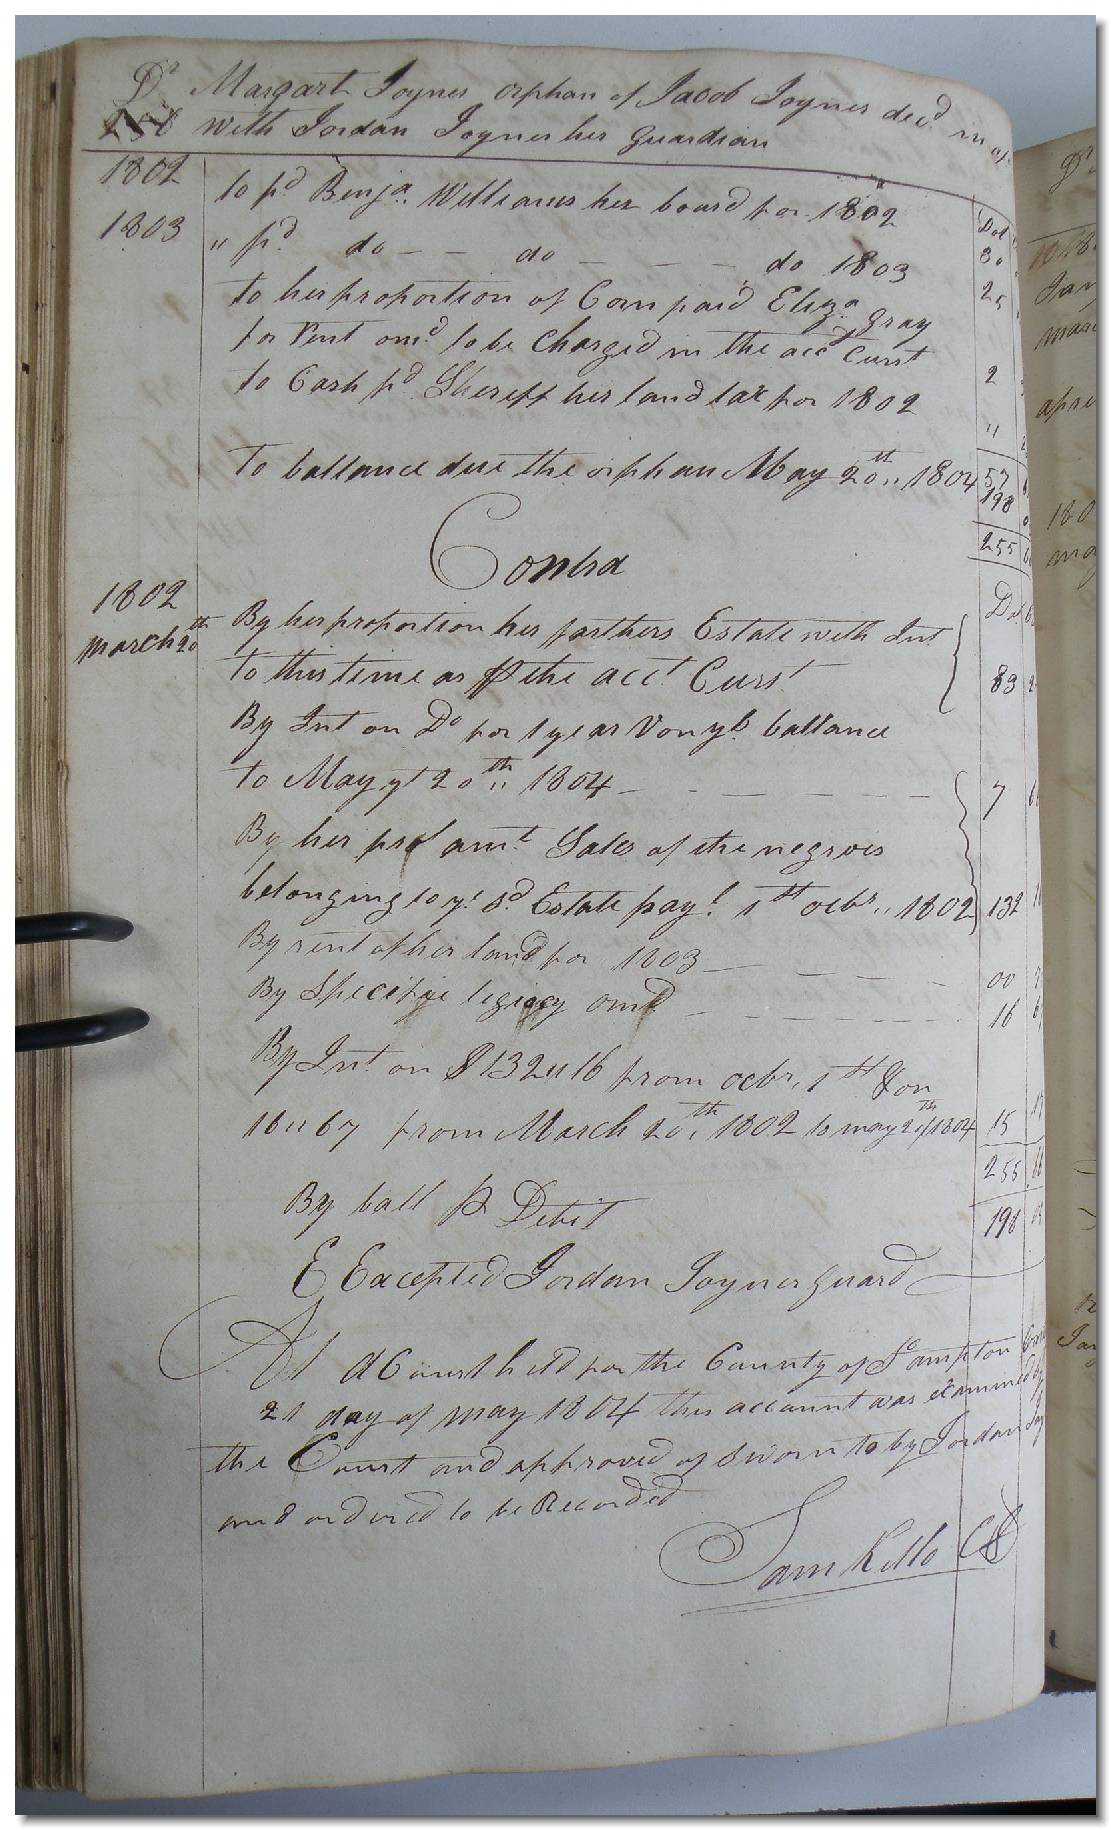 Dr Margart Joyner orphan of Jacob Joyner decd in a/
with Jordan Joyner her Guardian
1802 to pd Benja. Williams her board for 1802 Dol 30
1803 " pd do - - do - - - - do 1803 25
to her proportion of Corn paid Eliza Gray
for rent omd to be Charged in the acct Curst 2
to Cash pd Sheriff her land tax for 1802 "
to ballance due the orphan May 20th,, 1804 57
198
255
Contra
1802 Dol
march 20th By her proportion her farthers Estate with Int
to this time as p the acct Curst 89
By Int on Do for 1 year & on ye ballance
to May ye 20th,, 1804 - - - - - - - 7
By her pro amt Sales of the negroes
belonging to ye sd Estate payl 1st octbr,, 1802 132
By rent of her land for 1803 - - - - 00
By Specifie legacy omd - - - - - - 16
By Int on $132,,16 from octbr, 1st & on
16,,67 from March 20th, 1802 to may 20th 1804 15
255 66
By ball p Debit 198
E Excepted Jordan Joyner guard
At A Court held for the County of S'ampton
21 day of may 1804 this account was examined by
the Court and approved of Sworn to by Jordan Joy
and ordered to be Recorded
Sam Kello CC
Dr
1802
Jan
marc
apre
180
ma
Jan